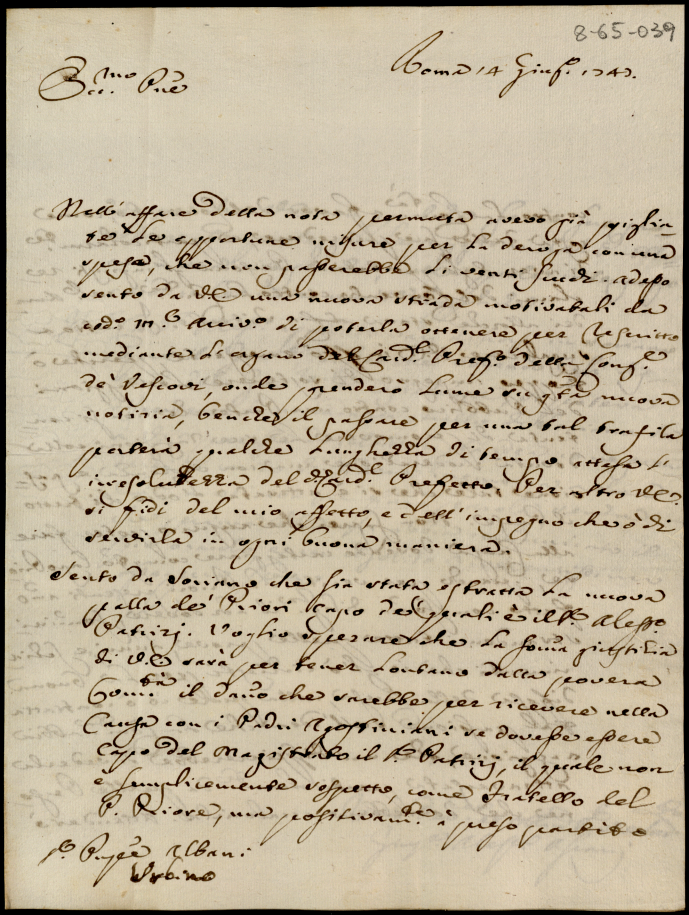 8-65-039
Roma 14 Giug.º 1747.
Ecc.mo Pñe
Nell'affare della nota permuta avevo già piglia-
te le opportune misure per la deroga, con una
spesa, che non passerebbe li venti scudi. adesso
sento da VE una nuova strada motivatali da
cod.º M.r Arciv.º di poterla ottenere per rescritto
mediante l'organo del Card.l Pref.º della Cong.e
de' Vescovi, onde prenderò lume su q̃ta nuova
notizia, benche il passare per una tal trafila
porterà qualche lunghezza di tempo attesa l'
irresolutezza del Card.l Prefetto. Per altro VE
si fidi del mio affetto, e dell'impegno che ò di
servirla in ogni buona maniera.
Sento da Soriano che sia stata estratta la nuova
palla de' Priori capo de' quali è il Aless.º
Patrizj. Voglio sperare che la somã giustizia
di VE sarà per tener lontano dalla povera
Com.tà il dan̄o che sarebbe per ricevere nella
Causa con i Padri Agostiniani se dovesse essere
Capo del Magistrato il Patrizj, il quale non
è semplicemente sospetto, come Fratello del
P. Priore, ma positivam.te à preso partito
Pñpe Albani
Urbino